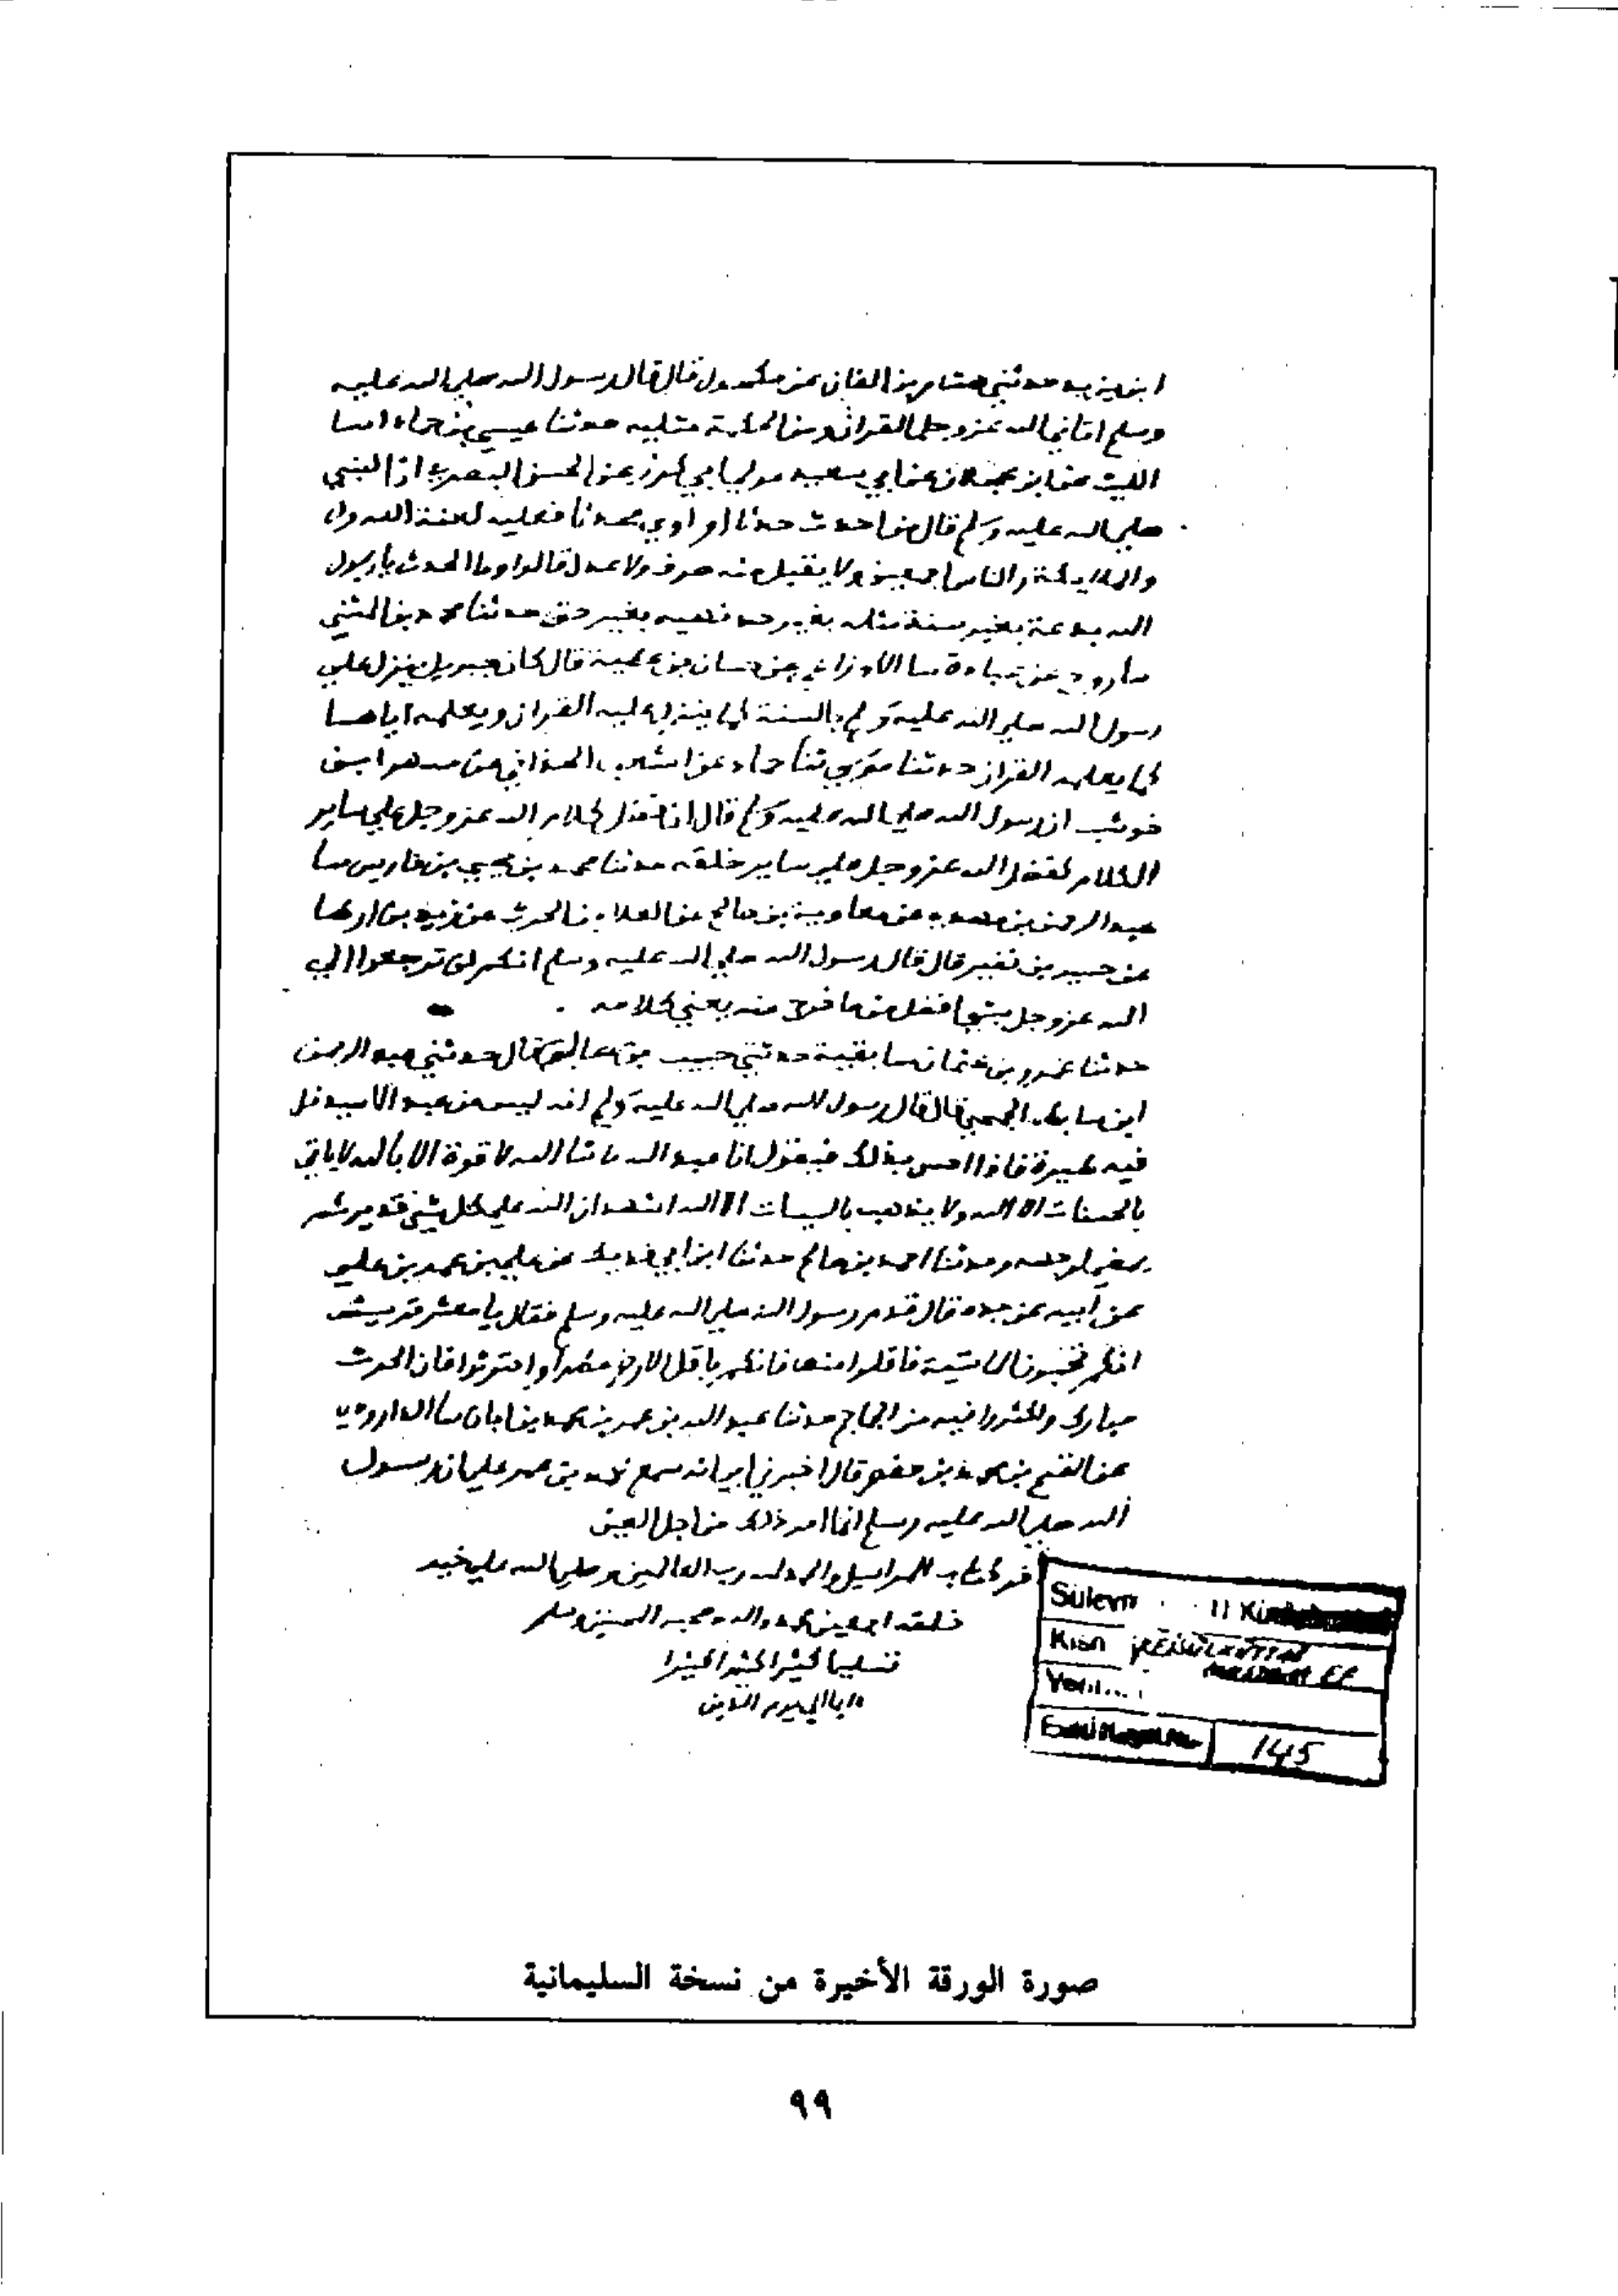 ابن يزيد حدثني هشام بن الغاز عن مكحول قال قال رسول الله صلي الله عليه
وسلم اتاني الله عز وجل القران ومن الحكمة مثليه حدثنا عيسي بن حماد اسا
الليث عن ابن عجلان عن ابي سعيد مولي ابي كرز عن الحسن البصري ان النبي
صلي الله عليه وسلم قال من احدث حدثا او اوي محدثا فعليه لعنة الله
والملايكة والناس اجمعين ولا يقبل منه صرف ولا عدل قالوا وما الحدث يا رسول
الله بدعة بغير سنة مثله بغير حد نهبه بغير حق حدثنا محمد بن المثني
سا روح عن عبادة سا الاوزاعي عن حسان بن عطية قال كان جبريل ينزل علي
رسول الله صلي الله عليه وسلم بالسنة كما ينزل عليه القران ويعلمه اياهسا
كما يعلمه القران حدثنا موسي ثنا حماد عن اشعث الحداني عن شهر ابن
حوشب ان رسول الله صلي الله عليه وسلم قال ان فضل كلام الله عز وجل علي ساير
الكلام كفضل الله عز وجل علي ساير خلقه حدثنا محمد بن يحيي بن فارس سا
عبد الرحمن بن مهدي عن معاوية بن صالح عن العلا بن الحرث عن زيد بن ارطا
عن جبير بن نفير قال قال رسول الله صلي الله عليه وسلم انكم لن ترجعوا الي
الله عز وجل بشي افضل من ما خرج منه يعني كلامه
حدثنا عمرو بن عثمان سا بقية حدثني حبيب بن صالح قال حدثني عبد الرحمن
ابن سابط الجمحي قال قال رسول الله صلي الله عليه وسلم انه ليس من عبد الا سيدخل
فيه طيرة فاذا احس بذلك فيقول انا عبد الله ما شا الله لا قوة الا بالله لا ياتي
بالحسنات الا الله ولا يذهب بالسيات الا الله اشهد ان الله علي كل شي قدير ثم
يمضي لوجهه وحدثنا احمد بن صالح حدثنا ابن ابي فديك عن علي بن عمر بن علي
عن ابيه عن جده قال قدم رسول الله صلي الله عليه وسلم فقال يا معشر قريش
انكم تحبون الماشية فاقلوا منها فانكم باقل الارض مطرا واحترثوا فان الحرث
مبارك واكثروا فيه من الجماجم حدثنا عبد الله بن عمر بن محمد بن ابان سا الدراوردي
عن الهيثم بن محمد بن حفص قال اخبرني ابي انه سمع محمد بن عمر علي ان رسول
الله صلي الله عليه وسلم انما امر ذلك من اجل العين
اخر كتاب المراسيل والحمد لله رب العالمين وصلي الله علي خير
خلقه اجمعين محمد واله وصحبه وسلم
تسليما كثيرا كثيرا كثيرا
دايما الي يوم الدين
Süleym
Kısmı REİSÜLKÜTTAB
Yeni
Eski Kayıt No 145
صورة الورقة الأخيرة من نسخة السليمانية
٩٩